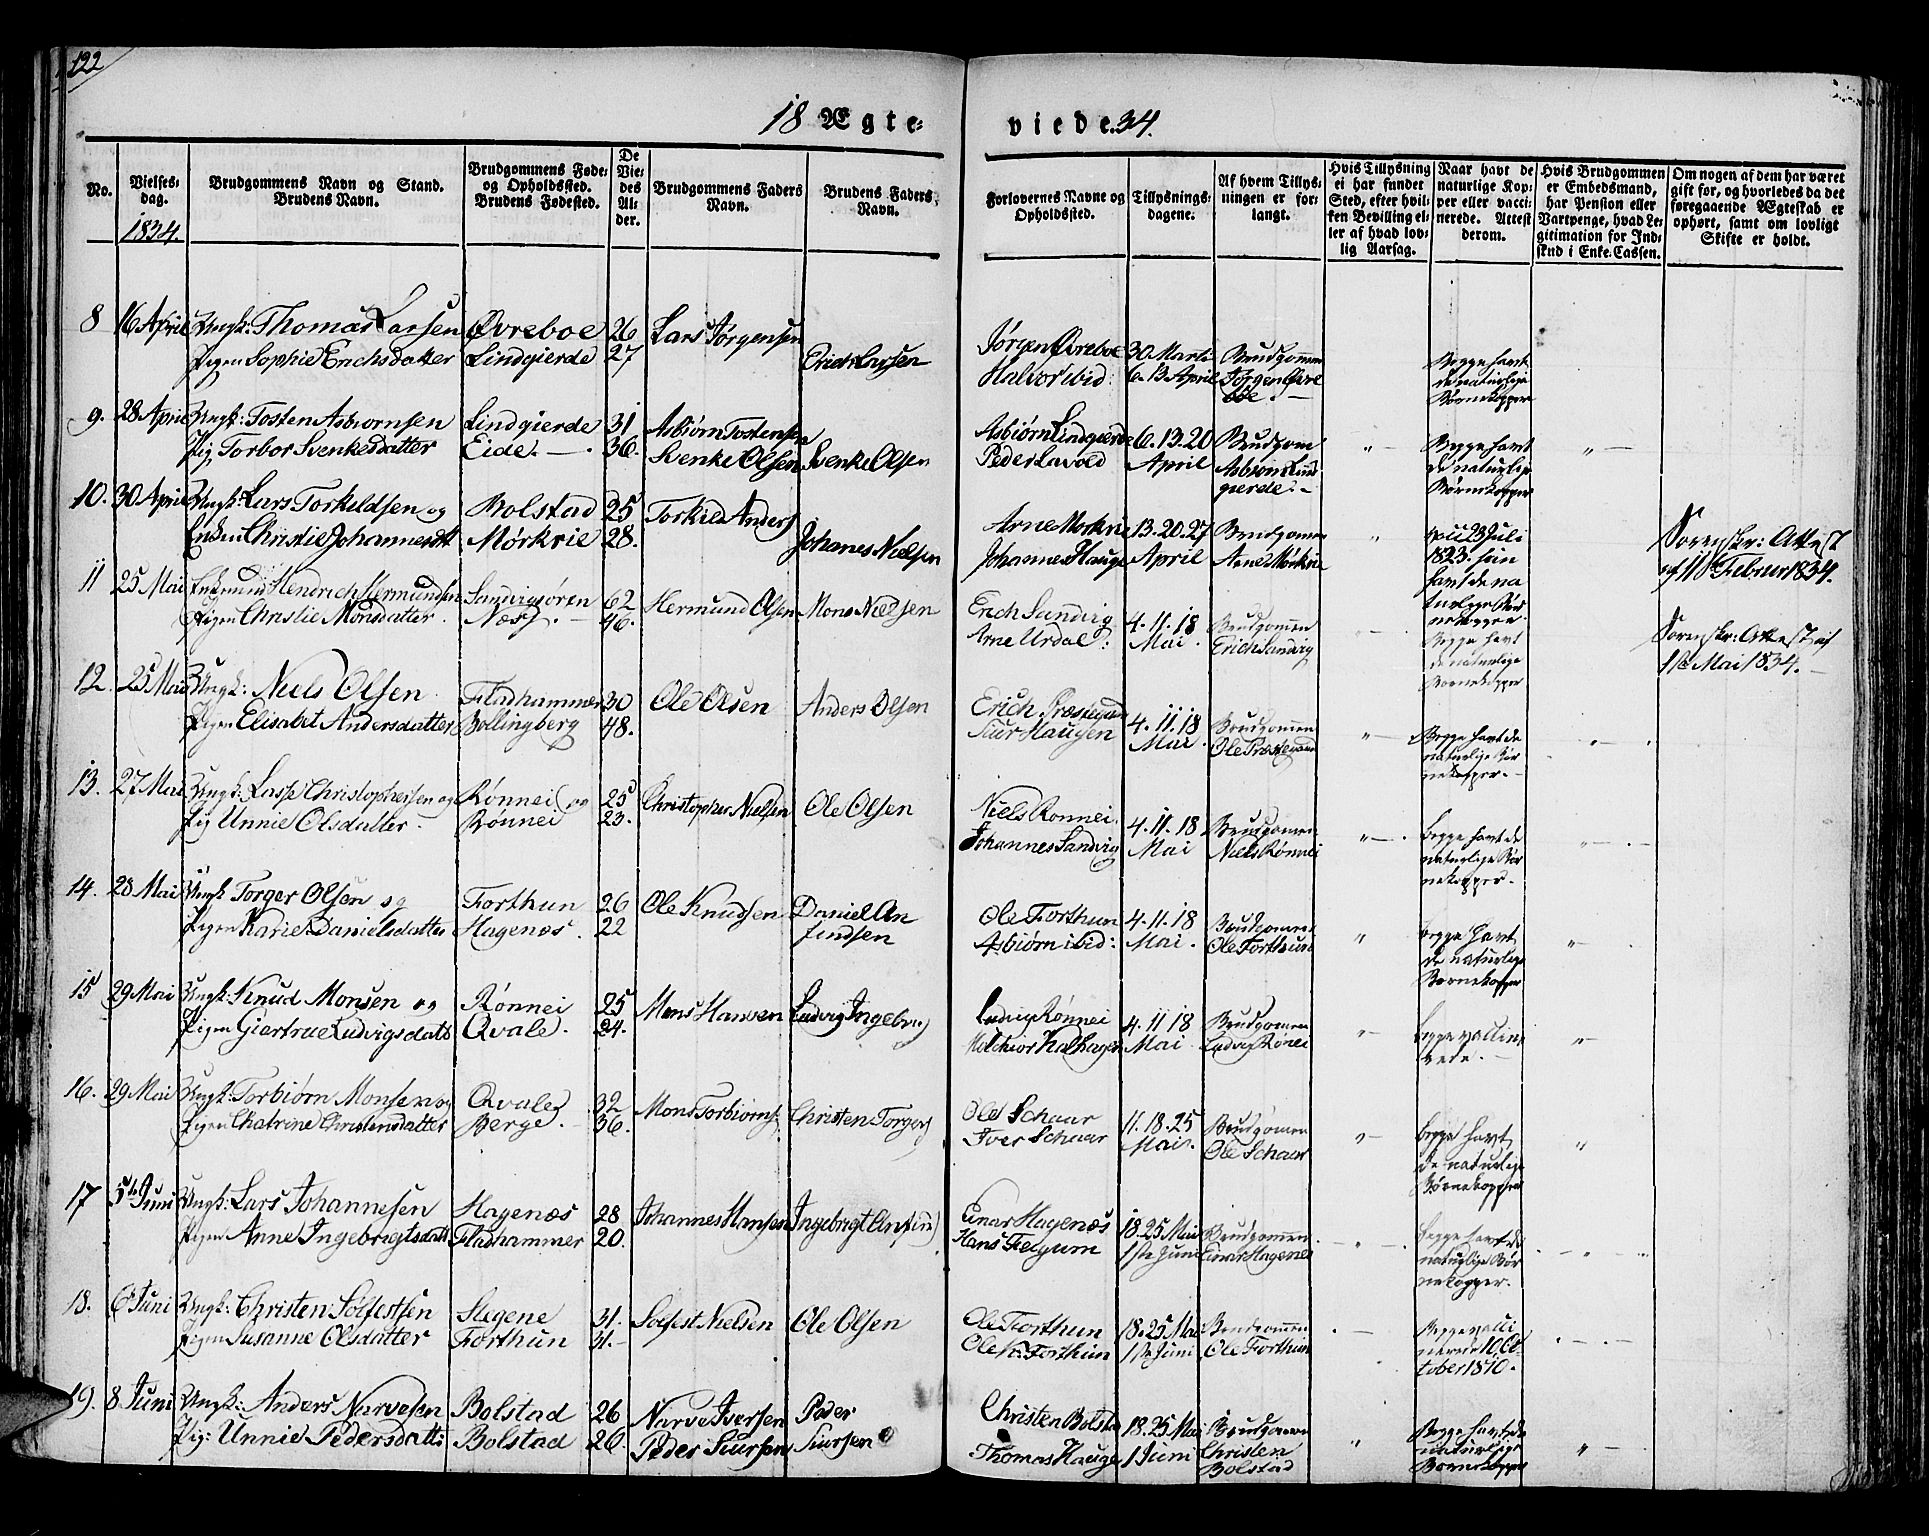 122
18 Ægte= viede. 34.
No.
Vielses=
dag.
1834.
Brudgommens Navn og Stand.
Brudens Navn.
Brudgommens Føde=
og Opholdssted.
Brudens Fødested.
De
Vie=
des
Al=
der.
Brudgommens Faders
Navn.
Brudens Faders
Navn.
Forlovernes Navne og
Opholdssted.
Tillysnings=
dagene.
Af hvem Tillys=
ningen er for=
langt.
Hvis Tillysning
ei har fundet
Sted, efter hvil=
ken Bevilling el=
ler af hvad lov=
lig Aarsag.
Naar havt de
naturlige Kop=
per eller vacci=
nerede. Attest
derom.
Hvis Brudgommen
er Embedsmand,
har Pension eller
Vartpenge, hvad Le=
gitimation for Ind=
skud i Enke=Cassen.
Om nogen af dem har været
gift før, og hvorledes da det
foregaaende Ægteskab er
ophørt, samt om lovligt
Skifte er holdt.
8 16 April Ungk: Thomas Larsen Øvreboe 26 Lars Jørgensen Jørgen Øvreboe 30 Marti Brudgommen Begge havt
Pigen Sophie Erichsdatter Lindgierde 27 Erich Larsen Halvor ibid: 6. 13 April Jørgen Øvre de naturlige
boe. — Børnekopper
9. 28 April Ungk: Tosten Asbiørnsen Lindgierde 31 Asbiørn Tostensen Asbiørn Lindgierde 6. 13. 20 Brudgom Begge havt
Pig Torbor Svenkesdatter Eide. — 36. Svenke Olsen Svenke Olsen Peder Lavold April Asbiorn Lind de naturlige
gierde. — Børnekopper
10. 30 April Ungk: Lars Torkildsen og Bolstad 25 Torkild Anders Arne Mørkrie 13. 20. 27 Brudgommen 23 Juli Sorenskr: Attest
Enken Christie Johannesdt Mørkrie 28. Johanes Nielsen Johannes Hauge April Arne Mørkrie 1823. hun af 11 Februar 1834.
havt de na
turlige Bør
nekopper
11 25 Mai Enkemand Hendrich Hermundsen Sandvigsøren 62 Hermund Olsen Mons Nielsen Erich Sandvig 4. 11. 18 Brudgommen Begge havt Sorenskr: Attest af
Pigen Christie Monsdatter. Næss. — 46. Arne Urdal: Mai. Erich Sandvig de naturlige 1ste Mai 1834. —
Børnekopper
12. 25 Mai Ungk: Niels Olsen Fladhammer 30 Ole Olsen Anders Olsen Erich Præstegard 4. 11. 18 Brudgommen Begge havt de
Pigen Elisabet Andersdatter Bollingberg 48. Siur Haugen Mai Ole Præstegaard naturlige Bør
nekopper. —
13. 27 Mai Ungk: Lasse Christophersen og Rønnei og 25 Christopher Nielsen Ole Olsen Niels Rønnei. 4. 11. 18 Brudgommen Begge havt de
Pig Unnie Olsdatter. Rønnei 23. Johannes Sandvig Mai Niels Rønnei naturlige Bør
nekopper.
14. 28 Mai Ungk Torger Olsen og Forthun 26 Ole Knudsen Daniel An Ole Forthun 4. 11. 18 Brudgommen Begge havt
Pigen Karie Danielsdatter Hagenæs. 22 findsen Asbiørn ibid: Mai. Ole Forthun de naturlige
Børnekopper
15 29 Mai Ungk: Knud Monsen og Rønnei 25 Mons Hansen Ludvig Ingebri Ludvig Rønnei 4. 11 18 Brudgommen Begge vaccine
Pigen Giertrue Ludvigsdatt Qvale. 24. Melchior Kalhagen Mai Ludvig Rønei rede. —
16. 29 Mai Ungk: Torbiørn Monsen og Qvale 32 Mons Torbiørns Christen Torgers Ole Schaar 11. 18. 25 Brudgommen Begge havt
Pigen Chatrine Christensdatter Berge. 36. Iver Schaar Mai. Ole Schaar de naturlige
Børnekopper
17 5te Juni Ungk: Lars Johannesen Hagenæs 28 Johannes Hansen Ingebrigt Anfin Einar Hagenæs 18. 25 Mai Brudgommen. Begge havt de
Pigen Anne Ingebrigtsdatt Fladhammer 20. Hans Feigum 1ste Juni Einar Hagenes naturlige Bør
nekopper.
18. 6 Juni Ungk: Christen Solfestsen Stegene 31. Solfest Nielsen Ole Olsen Ole Forthun 18. 25 Mai Brudgommen Begge vacci
Pigen Susanne Olsdatter Forthun 31. — Ole Forthun 1ste Juni Ole Forthun nerede 10 Oc
tober 1810.
19. 8 Juni Ungk: Anders Narvesen Bolstad 26 Narve Iversen Peder Christen Bolstad 18. 25 Mai Brudgommen Begge havt de
Pig: Unnie Pedersdatt: Bolstad 26. Peder Siursen Siursen Thomas Hauge 1 Juni Christen naturlige
Bolstad Børnekopper